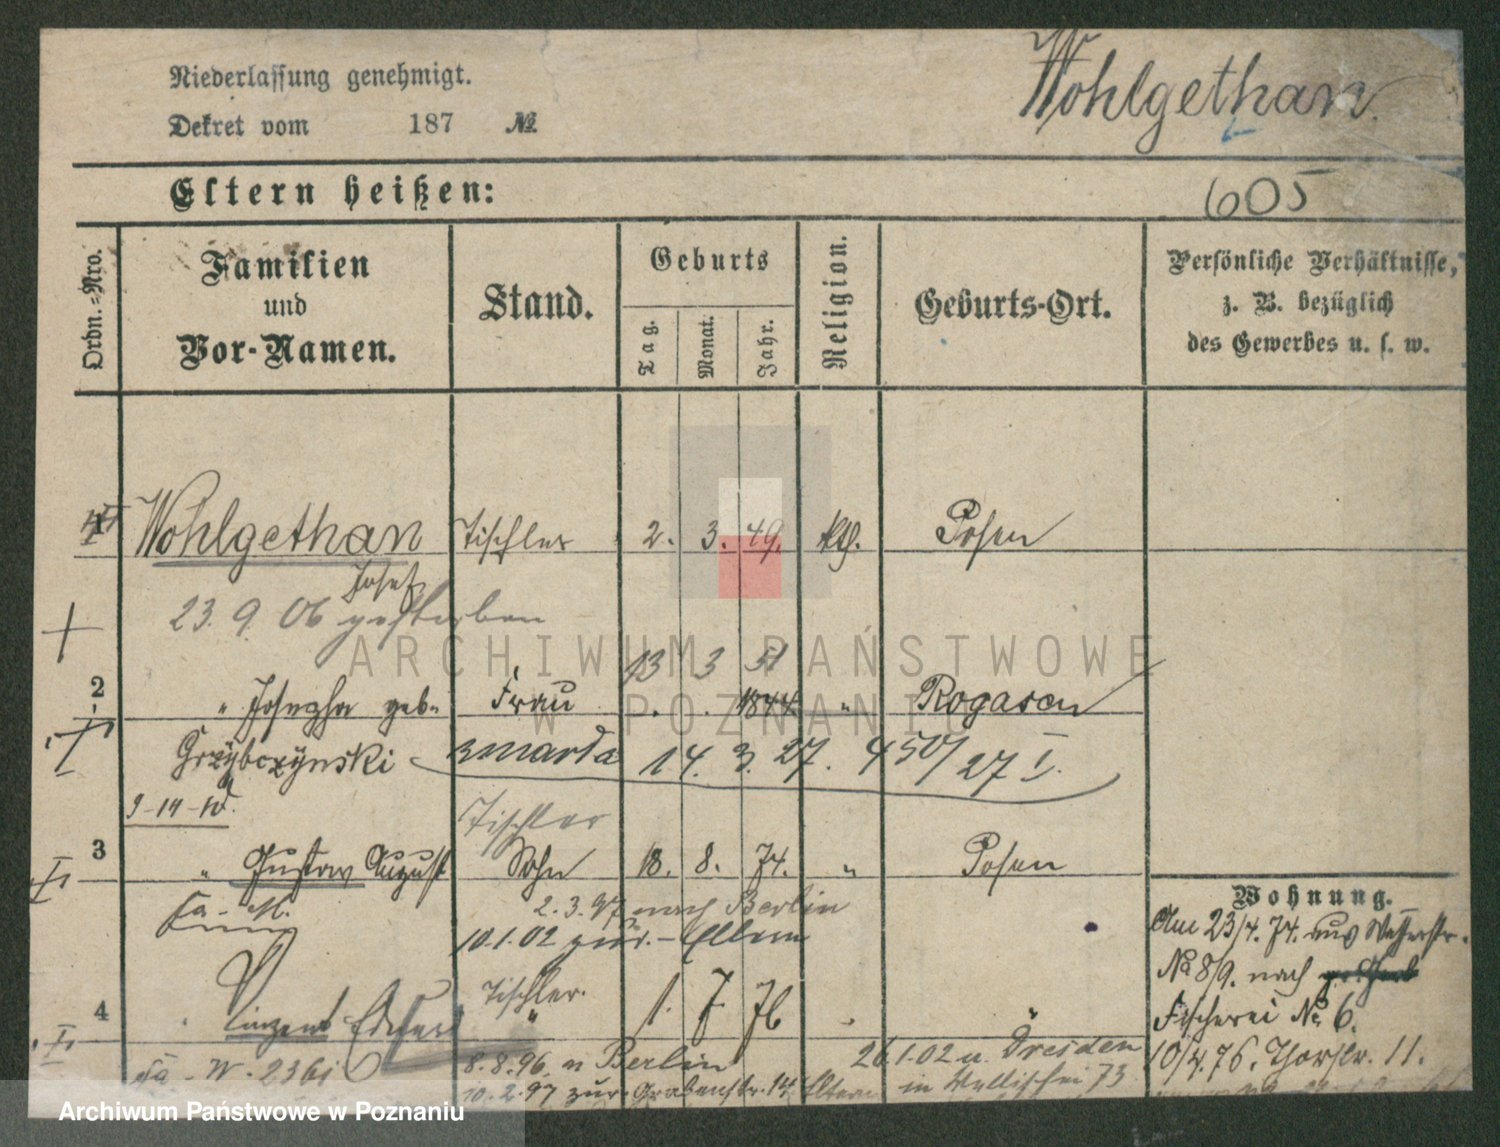 Niederlassung genehmigt.
Wohlgethan
Dekret vom 187 №
Eltern heißen:
605
Ordn.=Nro.
Familien
und
Vor-Namen.
Stand.
Geburts
Tag.
Monat.
Jahr.
Religion.
Geburts-Ort.
Persönliche Verhältnisse,
z. B. bezüglich
des Gewerbes u. s. w.
Wohlgethan Tischler 2. 3. 49. kth. Posen
Josef
23. 9. 06 gestorben
ARCHIWUM PAŃSTWOWE
W POZNANIU
13 3 51
2 " Josepha geb. Frau 1844 " Rogasen
Grzybczynski zmarła 14. 3. 27. 450/27 I.
9-14-10
Tischler
3 " Gustav August Sohn 18. 8. 74. " Posen
2. 3. 97 nach Berlin
10.1.02 zur. - Eltern
Wohnung.
Am 23/4. 74. aus Wasserstr.
No 8/9. nach
Fischerei No 6.
10/4. 76. Thorstr. 11.
Tischler.
4 Vinzent Eduard " 1. 7 76 "
8.8.96. n Berlin 26.1.02 n. Dresden
10.2.97 zur. Grabenstr. 14 Eltern in Wallischei 73
Archiwum Państwowe w Poznaniu